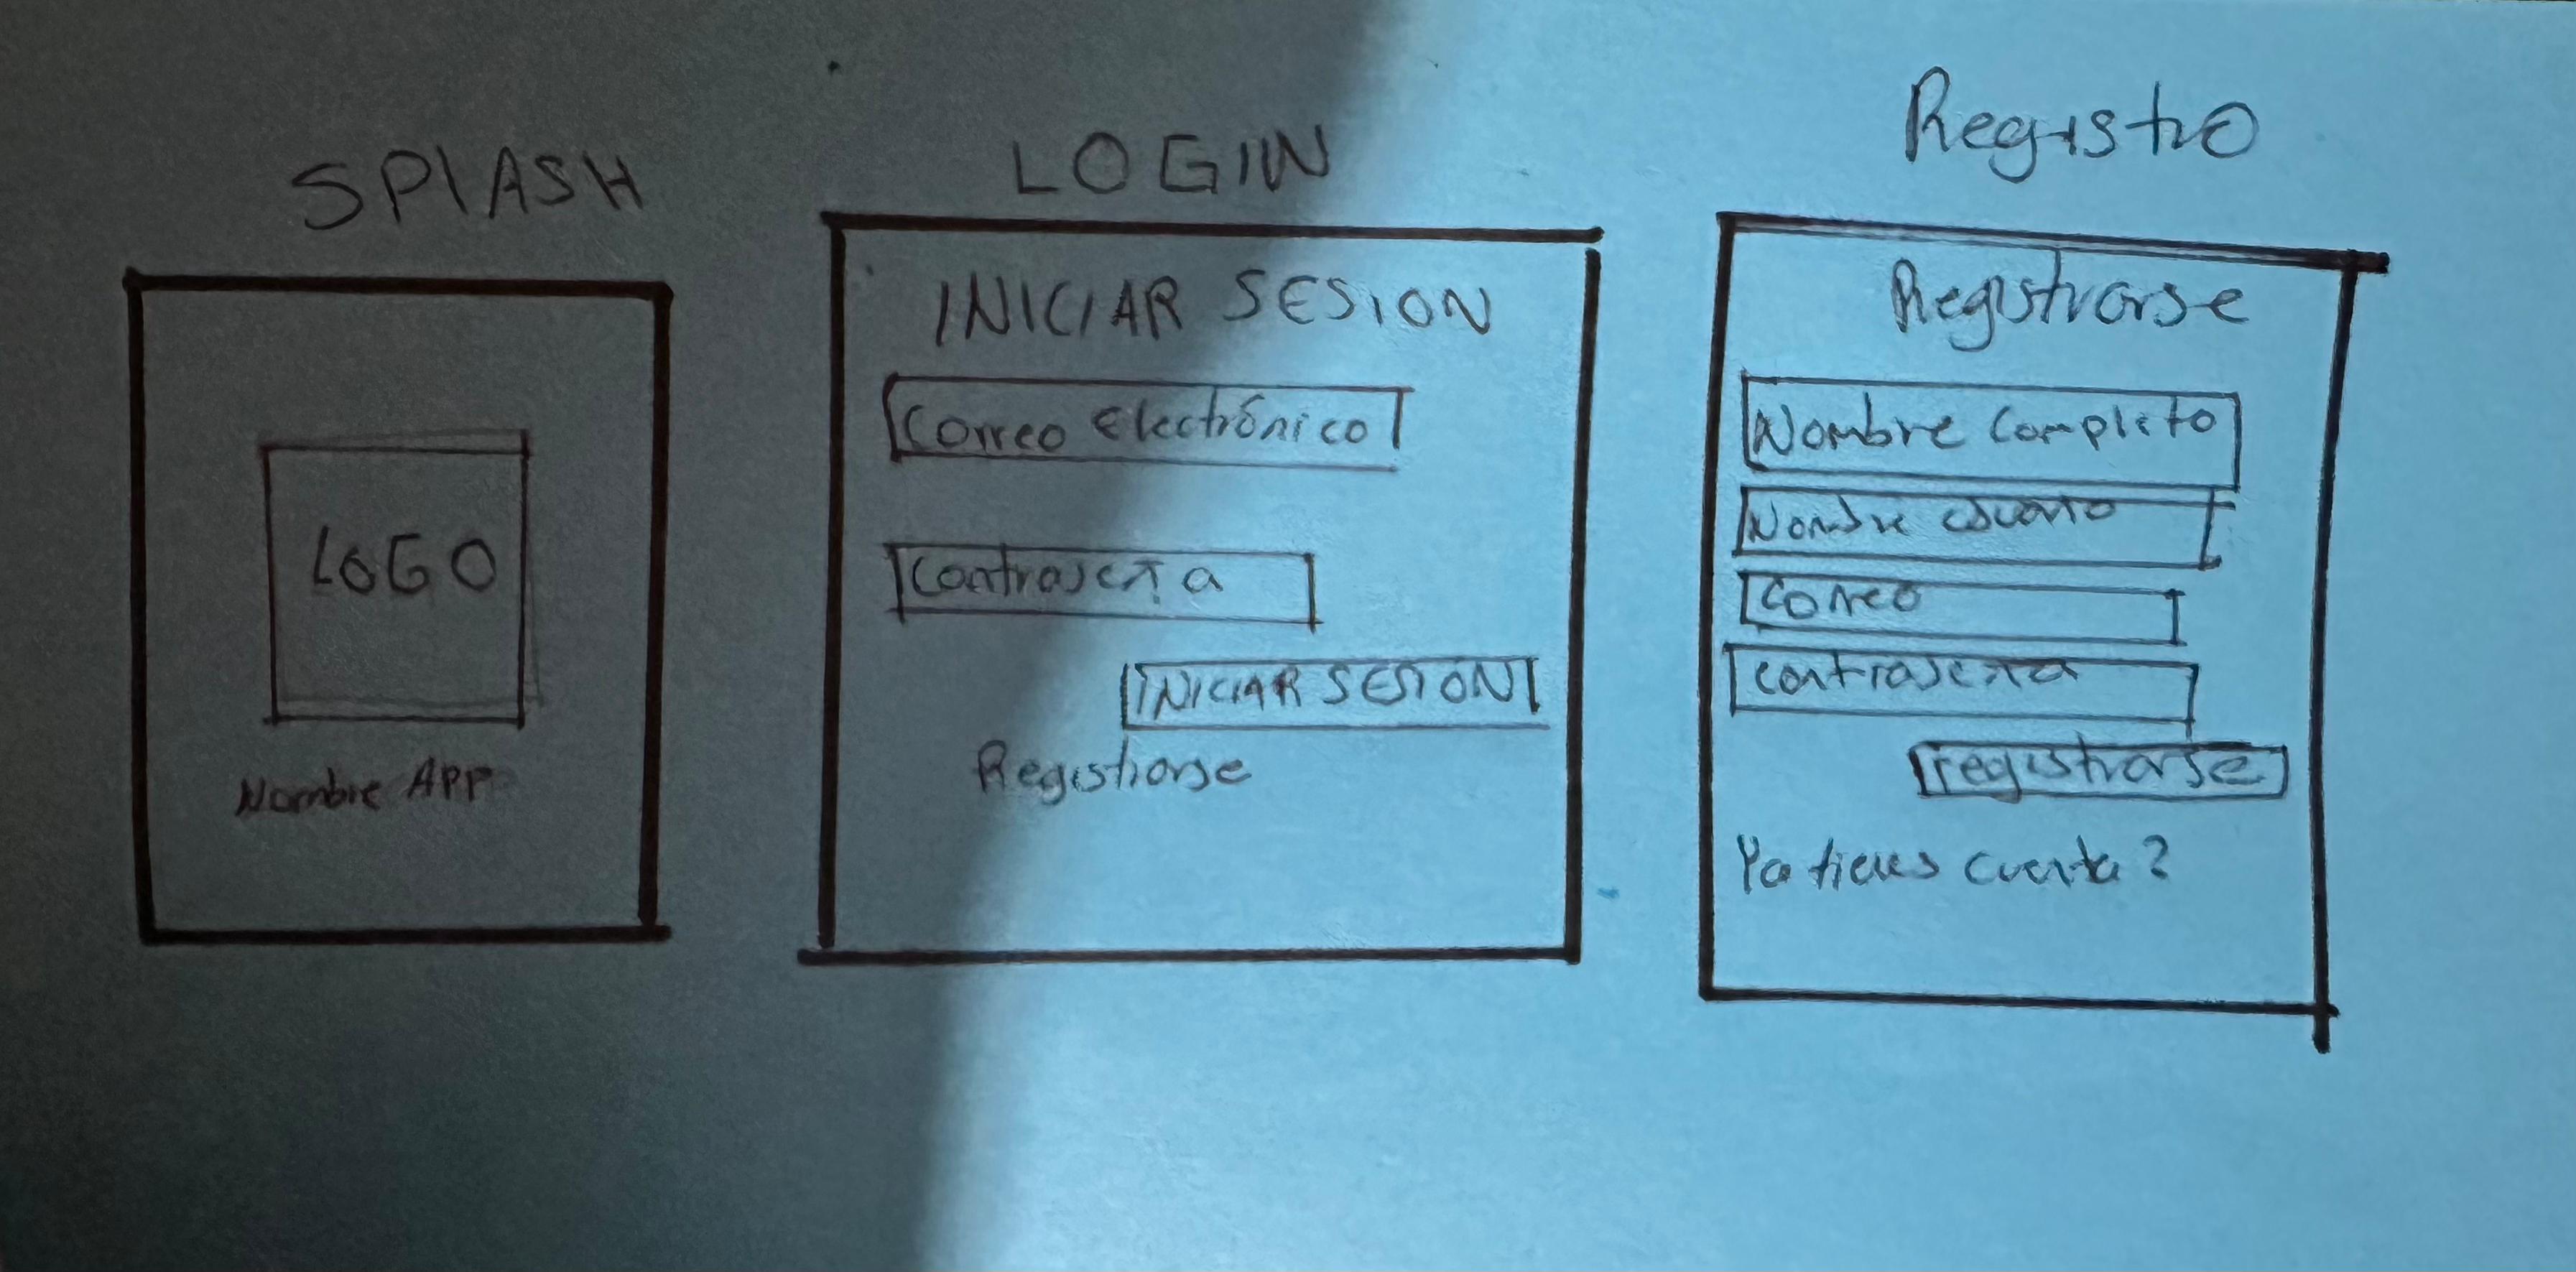 SPLASH
LOGO
Nombre App
LOGIN
INICIAR SESION
Correo Electrónico
Contraseña
INICIAR SESION
Registrarse
Registro
Registrarse
Nombre Completo
Nombre
Correo
contraseña
registrarse
Ya tienes cuenta?